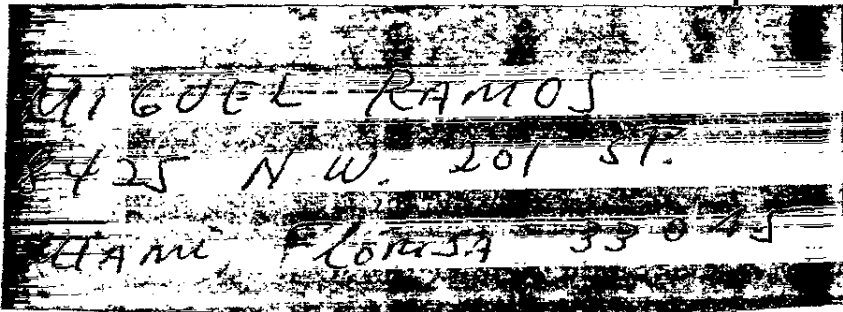 MIGUEL RAMOS
8425 N.W. 201 ST.
MIAMI, FLORIDA 33045